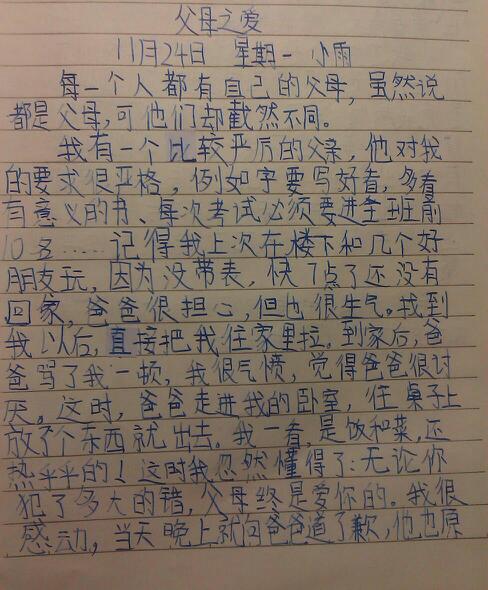 父母之爱
11月24日 星期一 小雨
每一个人都有自己的父母,虽然说
都是父母,可他们却截然不同。
我有一个比较严厉的父亲,他对我
的要求很严格,例如字要写好看,多看
有意义的书、每次考试必须要进全班前
10名……记得我上次在楼下和几个好
朋友玩,因为没带表,快7点了还没有
回家,爸爸很担心,但也很生气。找到
我以后,直接把我往家里拉。到家后,爸
爸骂了我一顿,我很气愤,觉得爸爸很讨
厌。这时,爸爸走进我的卧室,往桌子上
放了个东西就出去。我一看,是饭和菜,还
热乎乎的!这时我忽然懂得了:无论你
犯了多大的错,父母终是爱你的。我很
感动,当天晚上就向爸爸道了歉,他也原